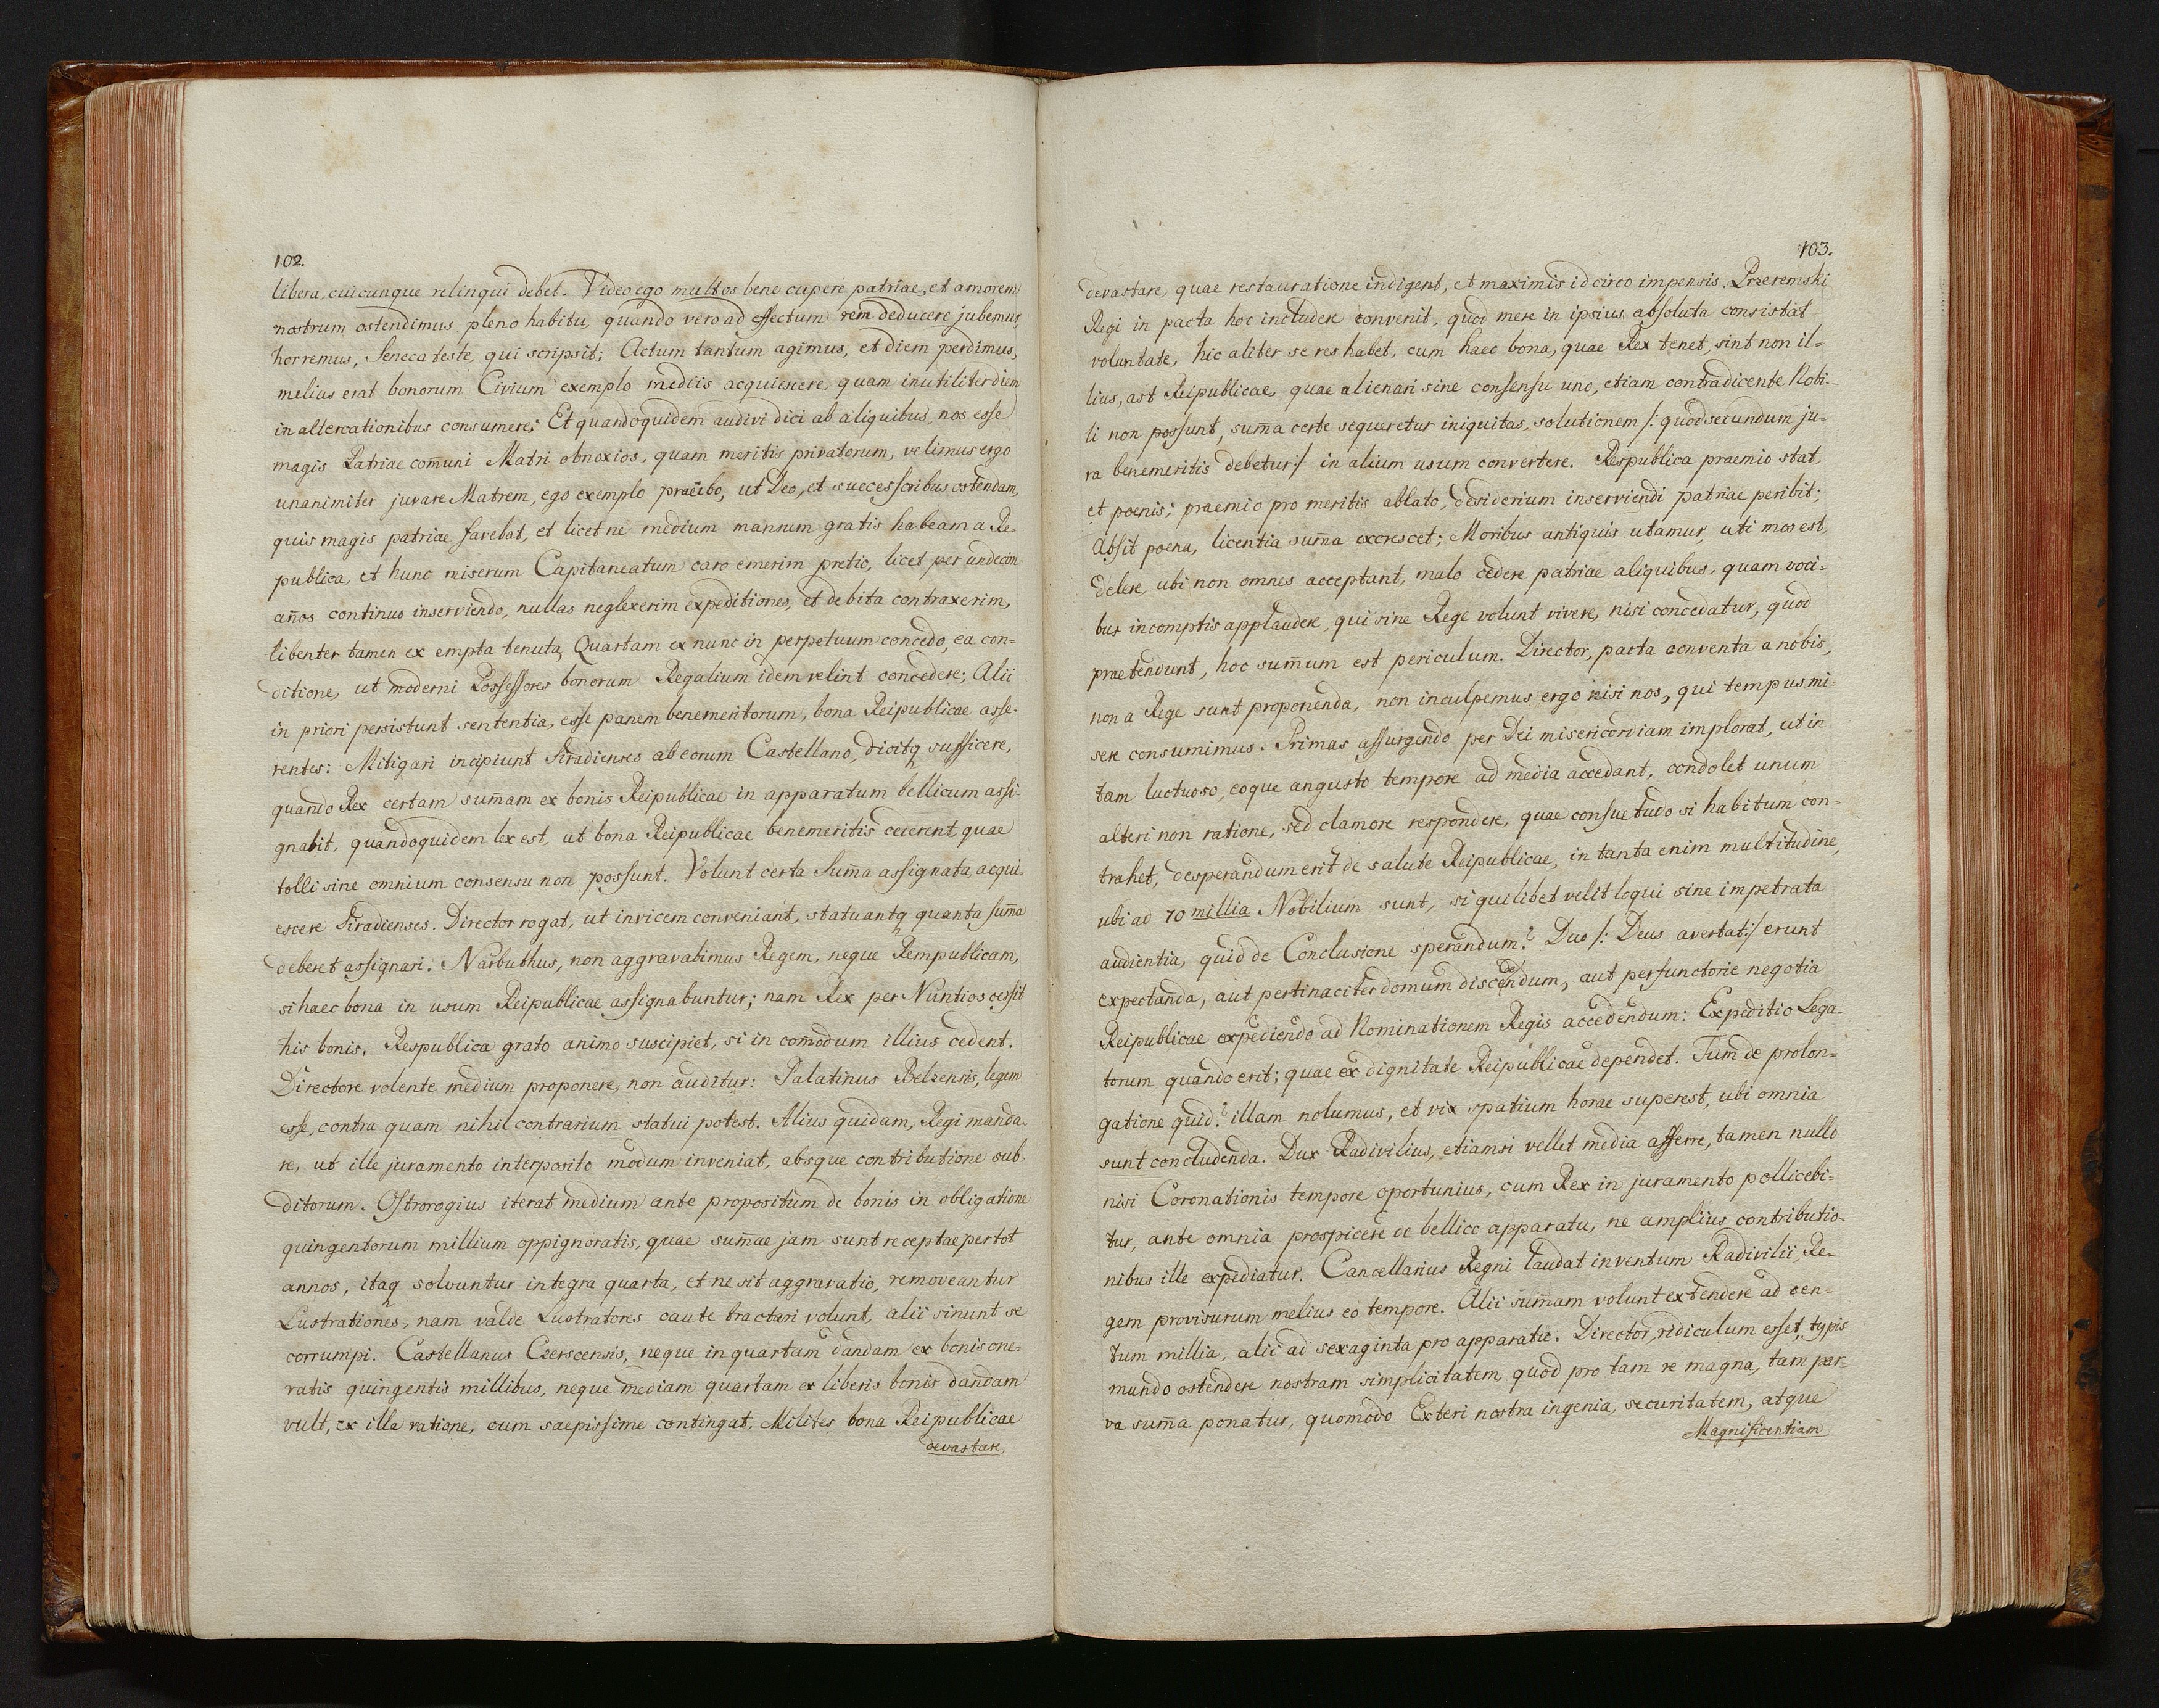 102.
libera, cuicunque relinqui debet. Video ego multos bene cupere patriae, et amorem
nostrum ostendimus pleno habitu, quando vero ad effectum rem deducere jubemus,
horremus, Seneca teste, qui scripsit; Actum tantum agimus, et diem perdimus,
melius erat bonorum Civium exemplo mediis acquiescere, quam inutiliter diem
in altercationibus consumere; Et quandoquidem audivi dici ab aliquibus, nos esse
magis Patriae com̄uni Matri obnoxios, quam meritis privatorum, velimus ergo
unanimiter juvare Matrem, ego exemplo praeibo, ut Deo, et successoribus ostendam,
quis magis patriae favebat, et licet ne medium mannum gratis habeam a Re-
publica, et hunc miserum Capitaneatum caro emerim pretio, licet per undecim
an̄os continuo inserviendo, nullas neglexerim expeditiones, et debita contraxerim,
libenter tamen ex empta tenuta, Quartam ex nunc in perpetuum concedo, ea con=
ditione, ut moderni Possessores bonorum Regalium idem velint concedere; Alii
in priori persistunt sententia, esse panem benemeritorum, bona Reipublicae asse-
rentes: Mitigari incipiunt Siradienses ab eorum Castellano, dicitq sufficere,
quando Rex certam sum̄am ex bonis Reipublicae in apparatum bellicum assi-
gnabit, quandoquidem lex est, ut bona Reipublicae benemeritis cederent, quae
tolli sine omnium consensu non possunt. Volunt certa Sum̄a assignata, acqui-
escere Siradienses. Director rogat, ut invicem conveniant, statuantq quanta sum̄a
deberet assignari. Narbuthus, non aggravabimus Regem, neque Rempublicam,
si haec bona in usum Reipublicae assignabuntur; nam Rex per Nuntios cessit
his bonis. Respublica grato animo suscipiet, si in com̄odum illius cedent.
Directore volente medium proponere, non auditur: Palatinus Belzensis, legem
esse, contra quam nihil contrarium statui potest. Alius quidam, Regi manda-
re, ut ille juramento interposito modum inveniat, absque contributione sub-
ditorum. Ostrorogius iterat medium ante propositum de bonis in obligatione
quingentorum millium oppignoratis, quae sum̄ae jam sunt receptae per tot
annos, itaq solvantur integra quarta, et ne sit aggravatio, removeantur
Lustrationes, nam valde Lustratores caute tractari volunt, alii sinunt se
corrumpi. Castellanus Czerscensis, neque in quartam dandam ex bonis one-
ratis quingentis millibus, neque mediam quartam ex liberis bonis dandam
vult, ex illa ratione, cum saepissime contingat, Milites bona Reipublicae
devastare,
103.
devastare, quae restauratione indigent, et maximis idcirco impensis. Przeremski
Regi in pacta hoc includere convenit, quod mere in ipsius absoluta consistat
voluntate, hic aliter se res habet, cum haec bona, quae Rex tenet, sint non il=
lius, ast Reipublicae, quae alienari sine consensu uno, etiam contradicente Nobi-
li non possunt, sum̄a certe sequeretur iniquitas, solutionem /: quod secundum ju-
ra benemeritis debetur:/ in alium usum convertere. Respublica praemio stat,
et poenis; praemio pro meritis ablato, desiderium inserviendi patriae peribit;
Absit poena, licentia sum̄a excrescet; Moribus antiquis utamur, uti mos est,
delere, ubi non omnes acceptant, malo cedere patriae aliquibus, quam voci-
bus incomptis applaudere, qui sine Rege volunt vivere, nisi concedatur, quod
praetendunt, hoc sum̄um est periculum. Director, pacta conventa a nobis,
non a Rege sunt proponenda, non inculpemus ergo nisi nos, qui tempus mi-
sere consumimus. Primas assurgendo per Dei misericordiam implorat, ut in
tam luctuoso, eoque angusto tempore ad media accedant, condolet unum
alteri non ratione, sed clamore respondere, quae consuetudo si habitum con-
trahet, desperandum erit de salute Reipublicae, in tanta enim multitudine,
ubi ad 70 millia Nobilium sunt, si quilibet velit loqui sine impetrata
audientia, quid de Conclusione sperandum? Duo /: Deus avertat:/ erunt
expectanda, aut pertinaciter domum discedendum, aut perfunctorie negotia
Reipublicae expediendo ad Nominationem Regis accedendum: Expeditio Lega-
torum quando erit; quae ex dignitate Reipublicae dependet. Tum de prolon=
gatione quid? illam nolumus, et vix spatium horae superest, ubi omnia
sunt concludenda. Dux Radivilius, etiamsi vellet media afferre, tamen nullo
nisi Coronationis tempore oportunius, cum Rex in juramento pollicebi-
tur, ante omnia prospicere de bellico apparatu, ne amplius contributio-
nibus ille expediatur. Cancellarius Regni laudat inventum Radivilii, Re-
gem provisurum melius eo tempore. Alii sum̄am volunt extendere ad cen-
tum millia, alii ad sexaginta pro apparatu. Director, ridiculum esset, typis
mundo ostendere nostram simplicitatem quod pro tam re magna, tam par-
va sum̄a ponatur, quomodo Exteri nostra ingenia, securitatem, atque
Magnificentiam